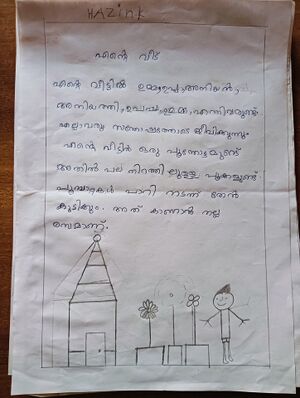 HAZink
എന്റെ വീട്
എന്റെ വീട്ടിൽ ഉമ്മ, ഉപ്പ, അനിയൻ,
അനിയത്തി, ഉപ്പുപ്പ, ഉമ്മമ്മ, എന്നിവരുണ്ട്
എല്ലാവരും സന്തോഷത്തോടെ ജീവിക്കുന്നു.
എന്റെ വീട്ടിൽ ഒരു പൂന്തോട്ടമുണ്ട്
അതിൽ പല നിറത്തി ലുള്ള പൂക്കളുണ്ട്
പൂമ്പാറ്റകൾ പാറി നടന്ന് തേൻ
കുടിക്കും. അത് കാണാൻ നല്ല
രസമാണ്.